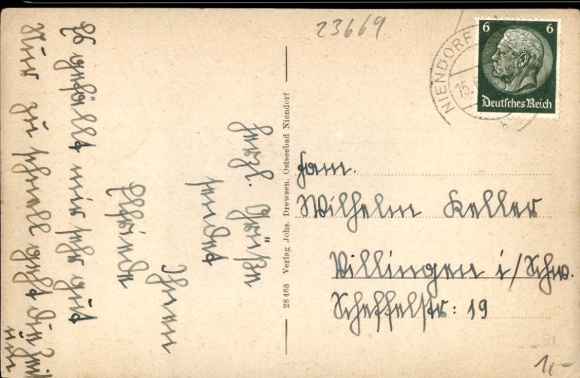 23669
NIENDORF
15.
6 6
Deutsches Reich
Fam.
Wilhelm Keller
Villingen i/Schw.
Scheffelstr: 19
28468 Verlag Johs. Drewsen, Ostseebad Niendorf
Herzl. Grüße
sendet
Ihnen
Es gefällt mir sehr gut
Nur zu schnell geht die Zeit
1,-